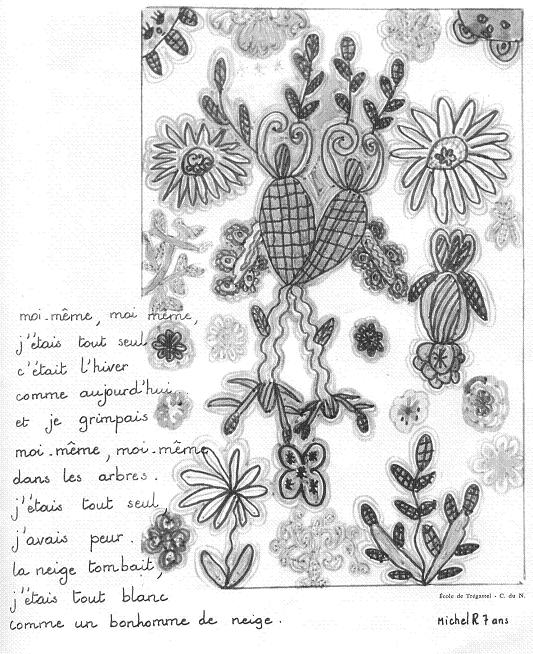 moi-même, moi même,
j'étais tout seul
c'était l'hiver
comme aujourd'hui.
et je grimpais
moi-même, moi-même
dans les arbres.
j'étais tout seul,
j'avais peur.
la neige tombait,
j'étais tout blanc
comme un bonhomme de neige.
École de Trégastel - C. du N.
Michel R 7 ans